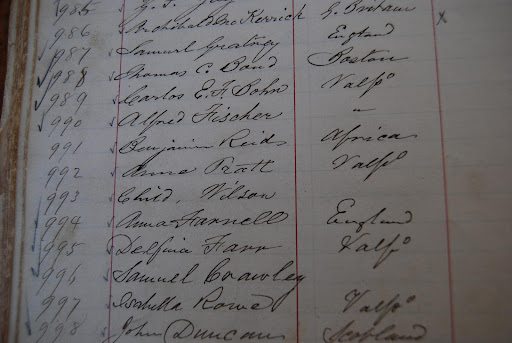 985 G. Britain
986 Archibald McKerrich England
987 Samuel Greatney Boston
988 Thomas C. Bond Valpo
989 Carlos E. F. Bohn "
990 Alfred Fischer Africa
991 Benjamin Reids Valpo
992 Anna Pratt
993 Child, Wilson
994 Anna Farnell England
995 Delfina Farr Valpo
996 Samuel Crawley
997 Isabella Rowe Valpo
998 John Duncan Scotland